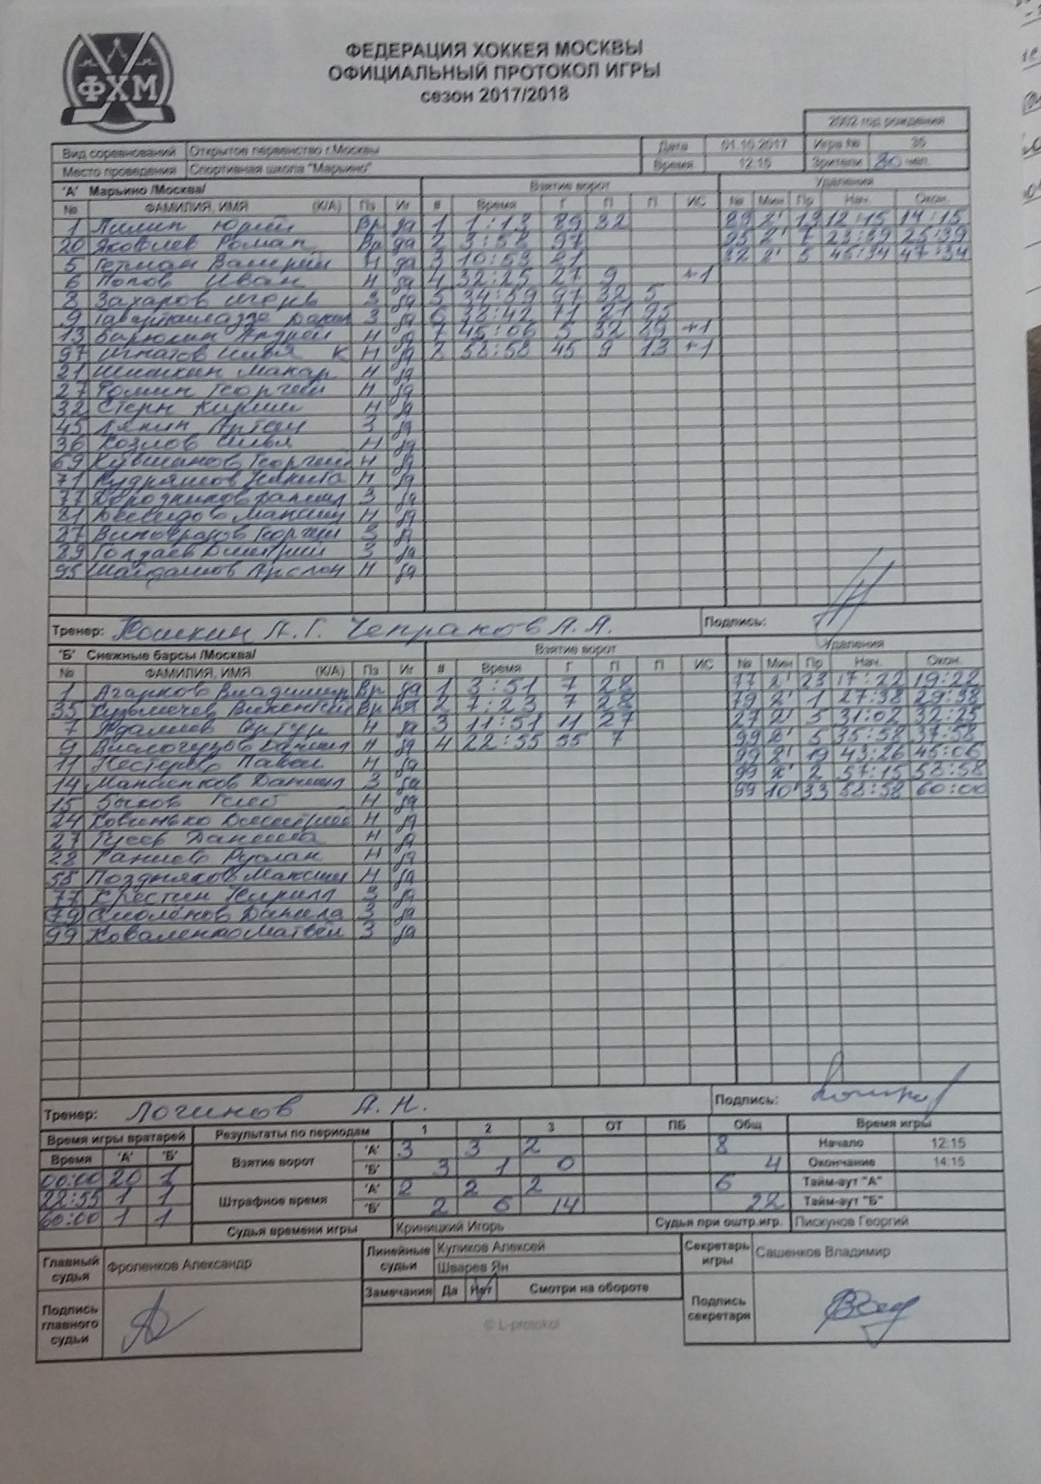 ФХМ
ФЕДЕРАЦИЯ ХОККЕЯ МОСКВЫ
ОФИЦИАЛЬНЫЙ ПРОТОКОЛ ИГРЫ
сезон 2017/2018
2002 год рождения
Вид соревнований Открытое первенство г.Москвы Дата 01.10.2017 Игра № 35
Место проведения Спортивная школа "Марьино" Время 12:15 Зрители 80 чел.
'А' Марьино /Москва/ Взятие ворот Удаления
№ ФАМИЛИЯ, ИМЯ (К/А) Пз Иг # Время Г П П ИС № Мин Пр Нач. Окон.
1 Юрий Вр да 1 1:13 89 32 89 2' 13 12:15 14:15
20 Яковлев Роман Вр да 2 3:58 97 95 2' 7 23:39 25:39
5 Гетман Валерий Н да 3 10:53 81 32 2' 5 45:34 47:34
6 Попов Иван Н да 4 32:25 27 9 +1
8 Захаров Игорь З да 5 34:59 97 32 5
9 З да 6 38:42 71 21 95
13 Андрей Н да 7 45:06 5 32 89 +1
97 Игнатов Илья К Н да 8 58:58 45 9 13 +1
21 Шишкин Макар Н да
27 Фомин Георгий Н да
32 Стерн Кирилл Н да
45 Лякин Артем З да
36 Козлов Илья Н да
69 Георгий Н да
71 Кудряшов Никита Н да
77 З да
81 Максим Н да
87 Виноградов Георгий З да
89 Голдаев Дмитрий З да
95 Арслан Н да
Тренер: Кошкин А.Г. Чепраков А.А. Подпись:
'Б' Снежные барсы /Москва/ Взятие ворот Удаления
№ ФАМИЛИЯ, ИМЯ (К/А) Пз Иг # Время Г П П ИС № Мин Пр Нач. Окон.
1 Агарков Владимир Вр да 1 3:51 7 28 77 2' 23 17:22 19:22
35 Вр 2 7:23 7 28 79 2' 1 27:38 29:38
7 Артур Н да 3 11:51 11 27 27 2' 5 31:02 32:25
9 Даниил Н да 4 22:55 55 7 99 2' 5 35:58 37:58
11 Павел Н да 99 2' 43:26 45:06
14 Даниил З да 99 2' 2 57:15 58:58
15 Быков Глеб Н да 99 10' 33 58:58 60:00
24 Дмитрий Н да
27 Гусев Данила Н да
28 Ганиев Руслан Н да
55 Поздняков Максим Н да
77 Крестин Кирилл З да
79 Смоленов Данила З да
99 Коваленко Матвей З да
Тренер: Логинов А.Н. Подпись:
Время игры вратарей Результаты по периодам 1 2 3 ОТ ПБ Общ Время игры
Время 'А' 'Б' Взятие ворот 'А' 3 3 2 8 Начало 12:15
00:00 20 1 'Б' 3 1 0 4 Окончание 14:15
22:55 1 1 Штрафное время 'А' 2 2 2 6 Тайм-аут "А"
60:00 1 1 'Б' 2 6 14 22 Тайм-аут "Б"
Судья времени игры Криницкий Игорь Судья при оштр.игр. Пискунов Георгий
Главный судья Фроленков Александр Линейные судьи Куликов Алексей Секретарь игры Сашенков Владимир
Шварев Ян
Замечания Да Нет Смотри на обороте
Подпись главного судьи Подпись секретаря
© L-protokol